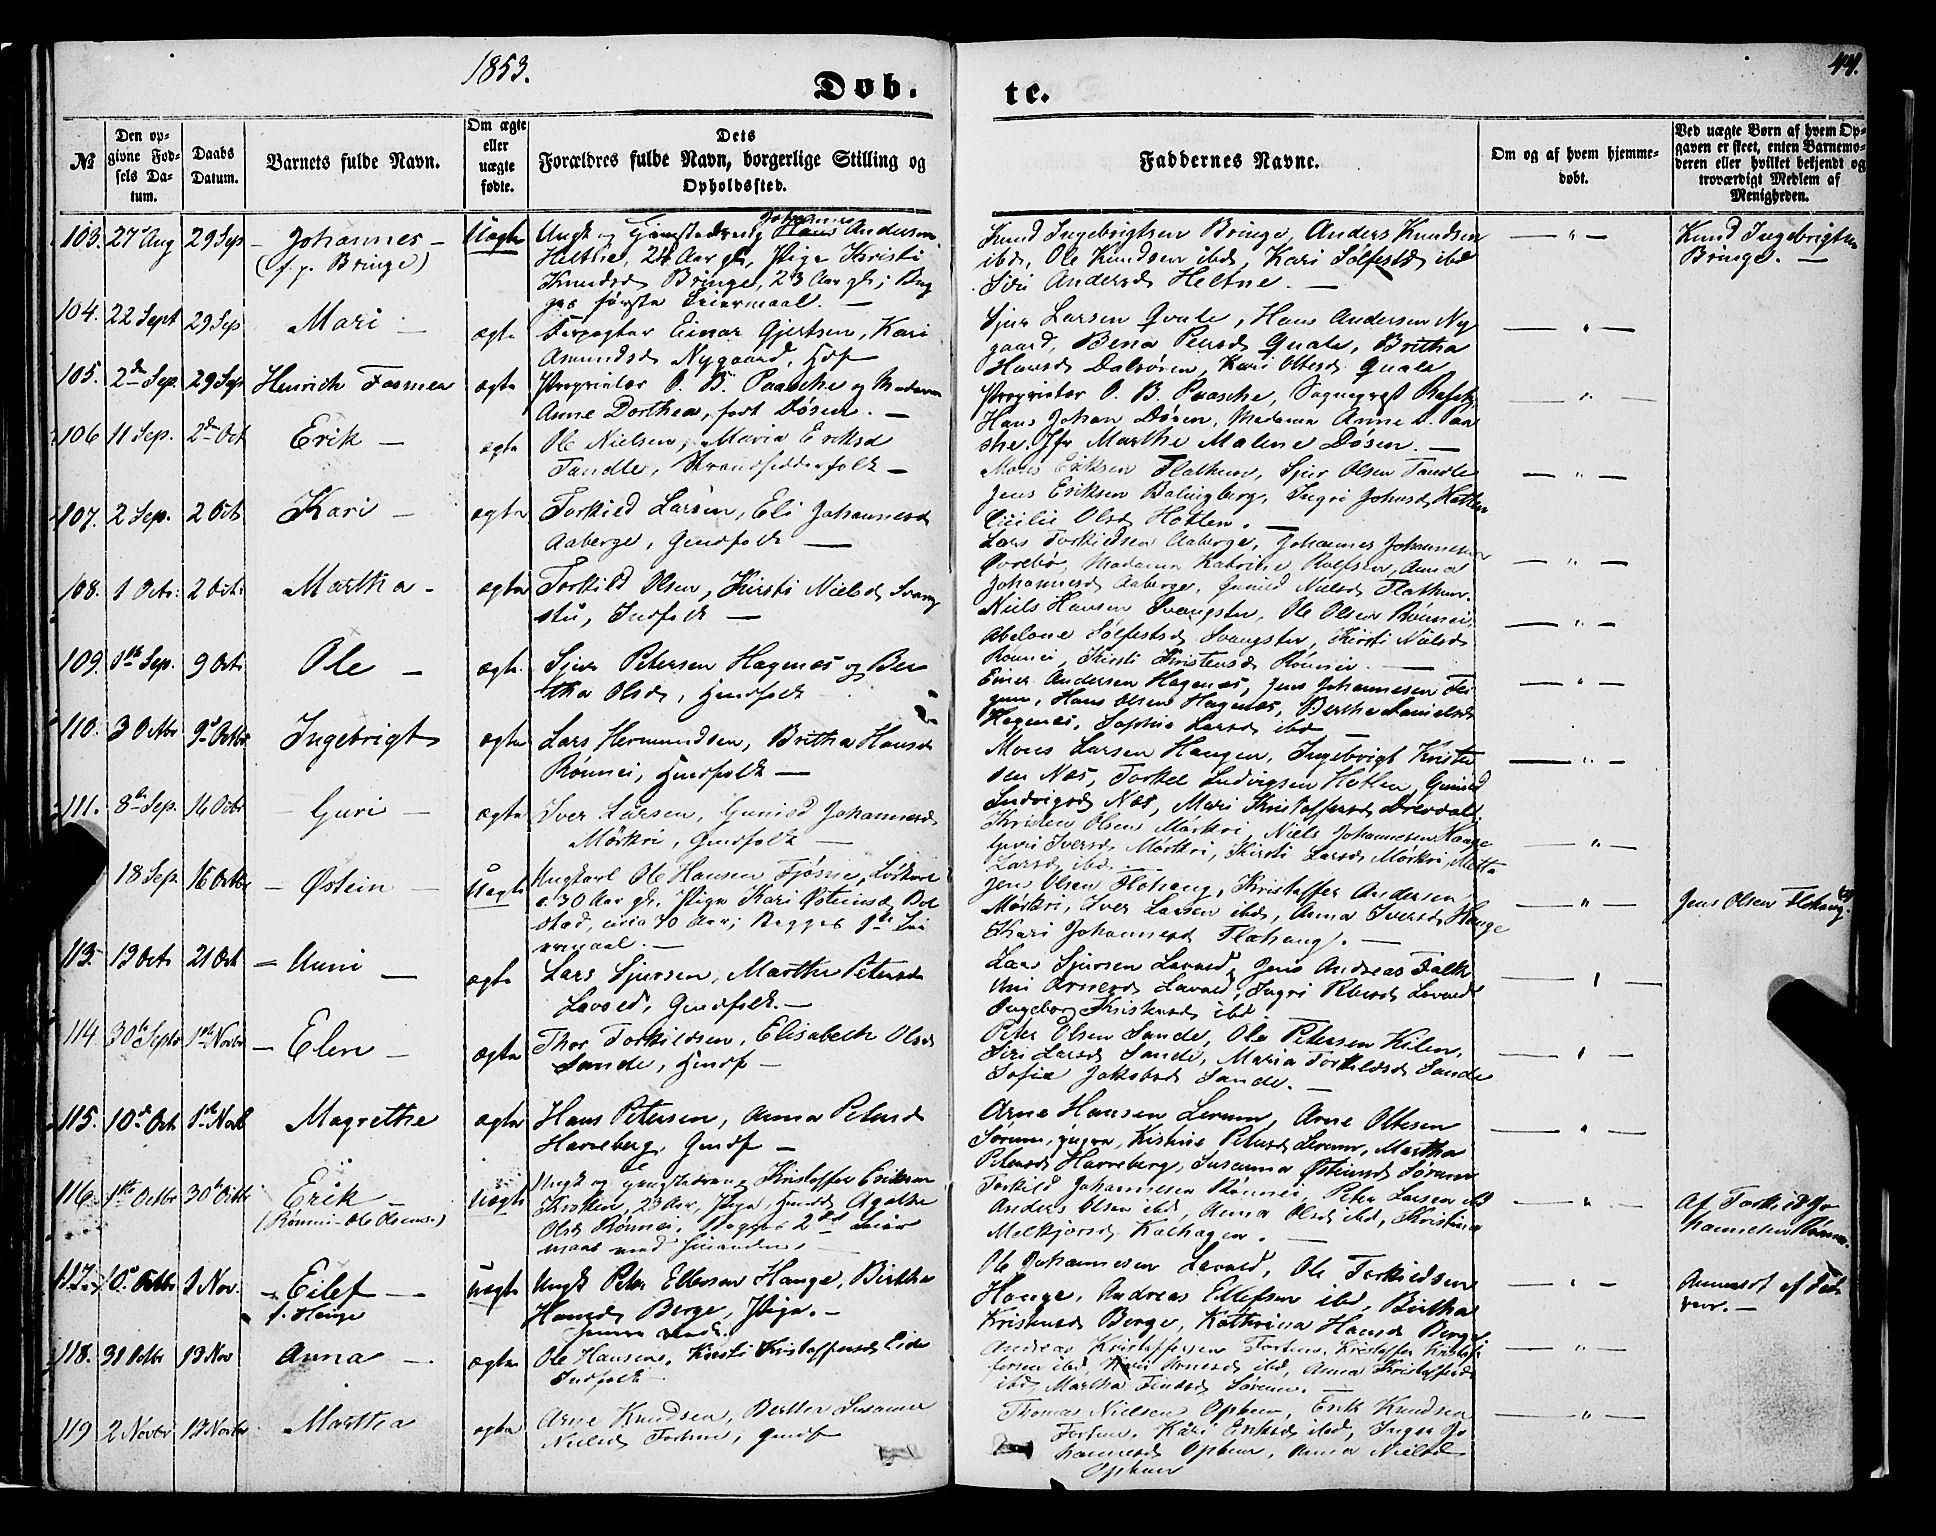 1853.
44.
Døb-
te.
№
Den op-
givne Fød-
sels Da-
tum.
Daabs
Datum.
Barnets fulde Navn.
Om ægte
eller
uægte
fødte.
Dets
Forældres fulde Navn, borgerlige Stilling og
Opholdssted.
Faddernes Navne.
Om og af hvem hjemme-
døbt.
Ved uægte Børn af hvem Op-
gaven er skeet, enten Barnemo-
deren eller hvilket bekjendt og
troværdigt Medlem af
Menigheden.
103. 27 Aug 29 Sep Johannes
(f. p. Bringe)
Uægte
Johannes
Ungk og Andersen
Heltne, 24 Aar gl, Pige Kristi
Knudsd Bringe, 23 Aar gl; Beg
ges første Leiermaal.
Knud Ingebrigtsen Bringe, Anders Knudsen
ibd, Ole Knudsen ibd, Kari Sølfestsd ibd
Siri Andersd Heltne.
Knud Ingebrigtsen
Bringe.
104. 22 Sept 29 Sep Mari
ægte
Einar Gjertsen, Kari
Asmundsd Nygaard,
Sjur Larsen Qvale, Hans Andersen Ny
gaard, Petersd Qvale, Britha
Hansd Dalsøren, Kari Ottesd Qvale
105. 2den Sep. 29 Sep Henrich Fasmer
ægte
Proprietær O. B. Paasche og Madame
Anne Dorthea, født Døsen.
Proprietær O. B. Paasche, Sogneprest
Hans Johan Døsen, Madame Anne D. Paa
sche, Jfr Marthe Malene Døsen.
106 11 Sep. 2den Oct Erik
ægte
Ole Nielsen, Maria Eriksd
Tandle, Strandsidderfolk
Mons Eriksen Flathun, Sjur Olsen Tandle
Jens Eriksen Ingri Johnsd
Cicilie Olsd Hotlen.
107. 2 Sep. 2 Oct Kari
ægte
Torkild Larsen, Eli Johannesd
Aaberge, Gmdfolk
Lars Torkildsen Aaberge, Johannes Johannesen
Madame Katrine Rolfsen, Anna
Johannesd Aaberge, Gunild Nielsd Flathun.
108. 1 Octr: 2 Octr Martha
ægte
Torkild Olsen, Kirsti Nielsd Svang
stu, Indfolk
Niels Hansen Svangstu, Ole Olsen Rønnei
Abelone Sølfestsd Svangstu, Kirsti Nielsd
Rønnei, Kirsti Kristensd Rønnei.
109. 1ste Sep. 9 Oct Ole
ægte
Sjur Petersen Hagenes og Ber
tha Olsd, Gmdfolk
Einer Andersen Hagenes, Jens Johannesen Fei
gum, Hans Olsen Hagenes, Berthe Danielsd
Hagenes, Sophie Larsd ibd
110. 3 Octbr 9de Octbr Ingebrigt
ægte
Lars Hermundsen, Britha Hansd
Rønnei, Gmdfolk
Mons Larsen Haugen, Ingebrigt Kristen
sen Næs, Torkel Ludvigsen Hotlen, Gunild
Ludvigsd Næs, Mari Kristoffersd Drevdal
111. 8de Sep. 16 Octbr Guri
ægte
Iver Larsen, Gunild Johannesd
Mørkri, Gmdfolk
Kristen Olsen Mørkri, Niels Johannesen Hauge
Guri Iversd Mørkri, Kirsti Larsd Mørkri, Mette
Larsd ibd.
18 Sep. 16 Octbr Østein
Uægte
Ungkarl Ole Hansen Fjøsne,
c. 30 Aar gl, Pige Kari Østeinsd Bol
stad, circa 30 Aar; Begges 1ste Lei
ermaal.
Jens Olsen Flohaug, Kristoffer Andersen
Mørkri, Iver Larsen ibd, Anna Iversd Hauge
Kari Johannesd Flohaug.
Jens Olsen Flohaug.
113. 13 Oct 21 Oct Anni
ægte
Lars Sjursen, Marthe Petersd
Lavold, Gmdfolk.
Lars Sjursen Lavold, Jens Andreas Falk
Arnesd Lavold, Ingri Petersd Lavold
Ingeborg Kristensd ibd
114. 30te Septbr 1ste Novbr Elen
ægte
Thor Torkildsen, Elisabeth Olsd
Sande, Gmdf
Peter Olsen Sande, Ole Petersen Kilen,
Siri Larsd Sande, Maria Torkildsd Sande
Sofie Jakobsd Sande.
115. 10de Oct 1ste Novb Magrethe
ægte
Hans Petersen, Anna Petersd
Harreberg, Gmdf
Arne Hansen Lerum, Arne Ottesen
Sørum, yngre, Kistine Petersd Lerum, Martha
Petersd Harreberg, Susanna Østensd Sørum
116. 1ste Octbr 30te Octbr Erik
(Rønnei Ole Olsens)
Uægte
Ungk og Kristoffer Eriksen
Kroken, 23 Aar, Pige, Agathe
Olsd Rønnei, Begges 2det Leier
maal med hinanden.
Torkild Johannesen Rønnei, Peter Larsen ibd
Anders Olsen ibd, Anna Olsd ibd, Kristina
Melkjorsd Kalhagen.
Af Torkild Jo
hannesen Rønnei.
117. 10de Octbr 1 Nov. Eilef
f. Hauge
uægte
Ungk Peter Ellefsen Hauge, Birtha
Hansd Berge, Pige.
Ole Johannesen Lavold, Ole Torkildsen
Hauge, Andreas Ellefsen ibd, Birtha
Kristensd Berge, Kathrina Hansd Berge
Anmeldt af Fad
deren.
118. 31 Octbr 13 Nov Anna
ægte
Ole Hansen, Kirsti Kristoffersd Eide
Indfolk
Andreas Kristoffersen Fortun, Kristoffer Kristof
fersen ibd, Kari Arnesd ibd, Anna Kristoffersd
ibd, Martha Findsd Sørum.
119 2 Novbr 13 Novbr Martha
ægte
Arne Knudsen, Berthe Susanne
Nielsd Fortun, Gmdf
Thomas Nielsen Ophun, Erik Knudsen
Fortun, Kari Eriksd ibd, Inger Jo
hannesd Ophun, Anna Nielsd
Ophun